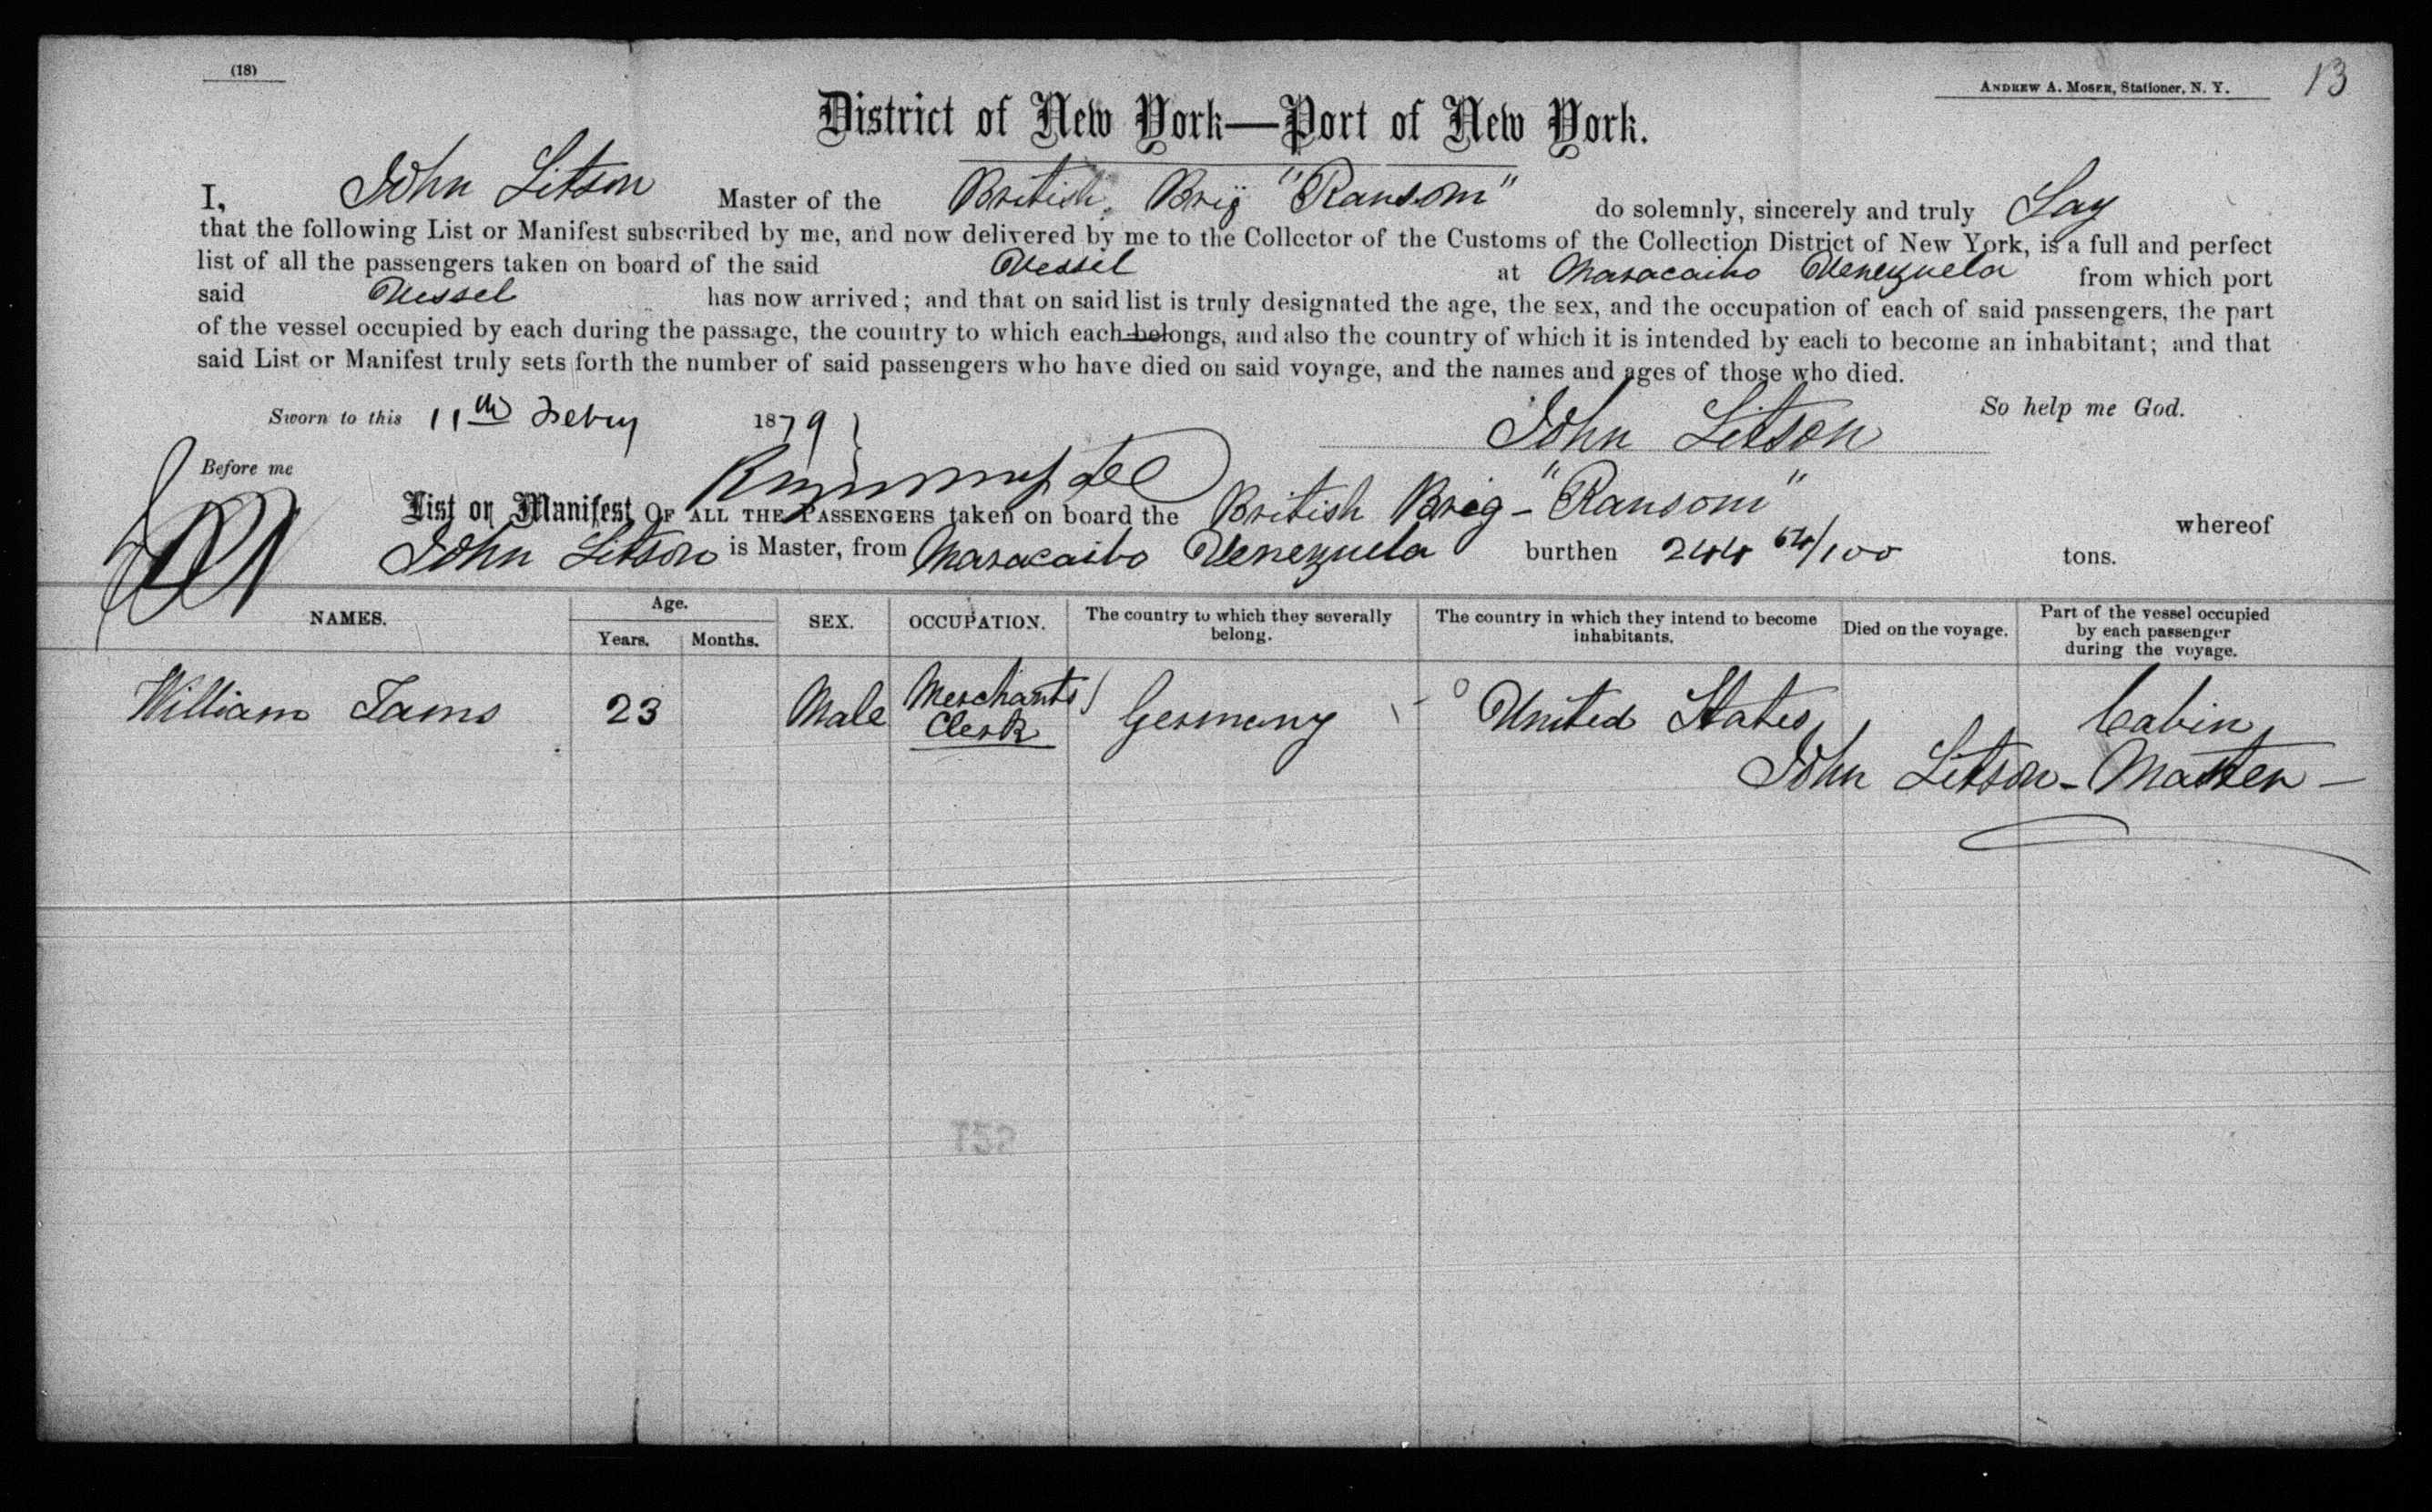 (18)
ANDREW A. MOSER, Stationer, N. Y.
13
District of New York—Port of New York.
I, John Litson Master of the British Brig "Ransom" do solemnly, sincerely and truly Say
that the following List or Manifest subscribed by me, and now delivered by me to the Collector of the Customs of the Collection District of New York, is a full and perfect
list of all the passengers taken on board of the said Vessel at Maracaibo Venezuela from which port
said Vessel has now arrived; and that on said list is truly designated the age, the sex, and the occupation of each of said passengers, the part
of the vessel occupied by each during the passage, the country to which each belongs, and also the country of which it is intended by each to become an inhabitant; and that
said List or Manifest truly sets forth the number of said passengers who have died on said voyage, and the names and ages of those who died.
So help me God.
Sworn to this 11th Febry 1879
John Litson
Before me
List or Manifest OF ALL THE PASSENGERS taken on board the British Brig - "Ransom" whereof
John Litson is Master, from Maracaibo Venezuela burthen 244 64/100 tons.
NAMES. Age. Years. Months. SEX. OCCUPATION. The country to which they severally belong. The country in which they intend to become inhabitants. Died on the voyage. Part of the vessel occupied by each passenger during the voyage.
William Jams 23 Male Merchants Clerk Germany United States Cabin
John Litson - Master -